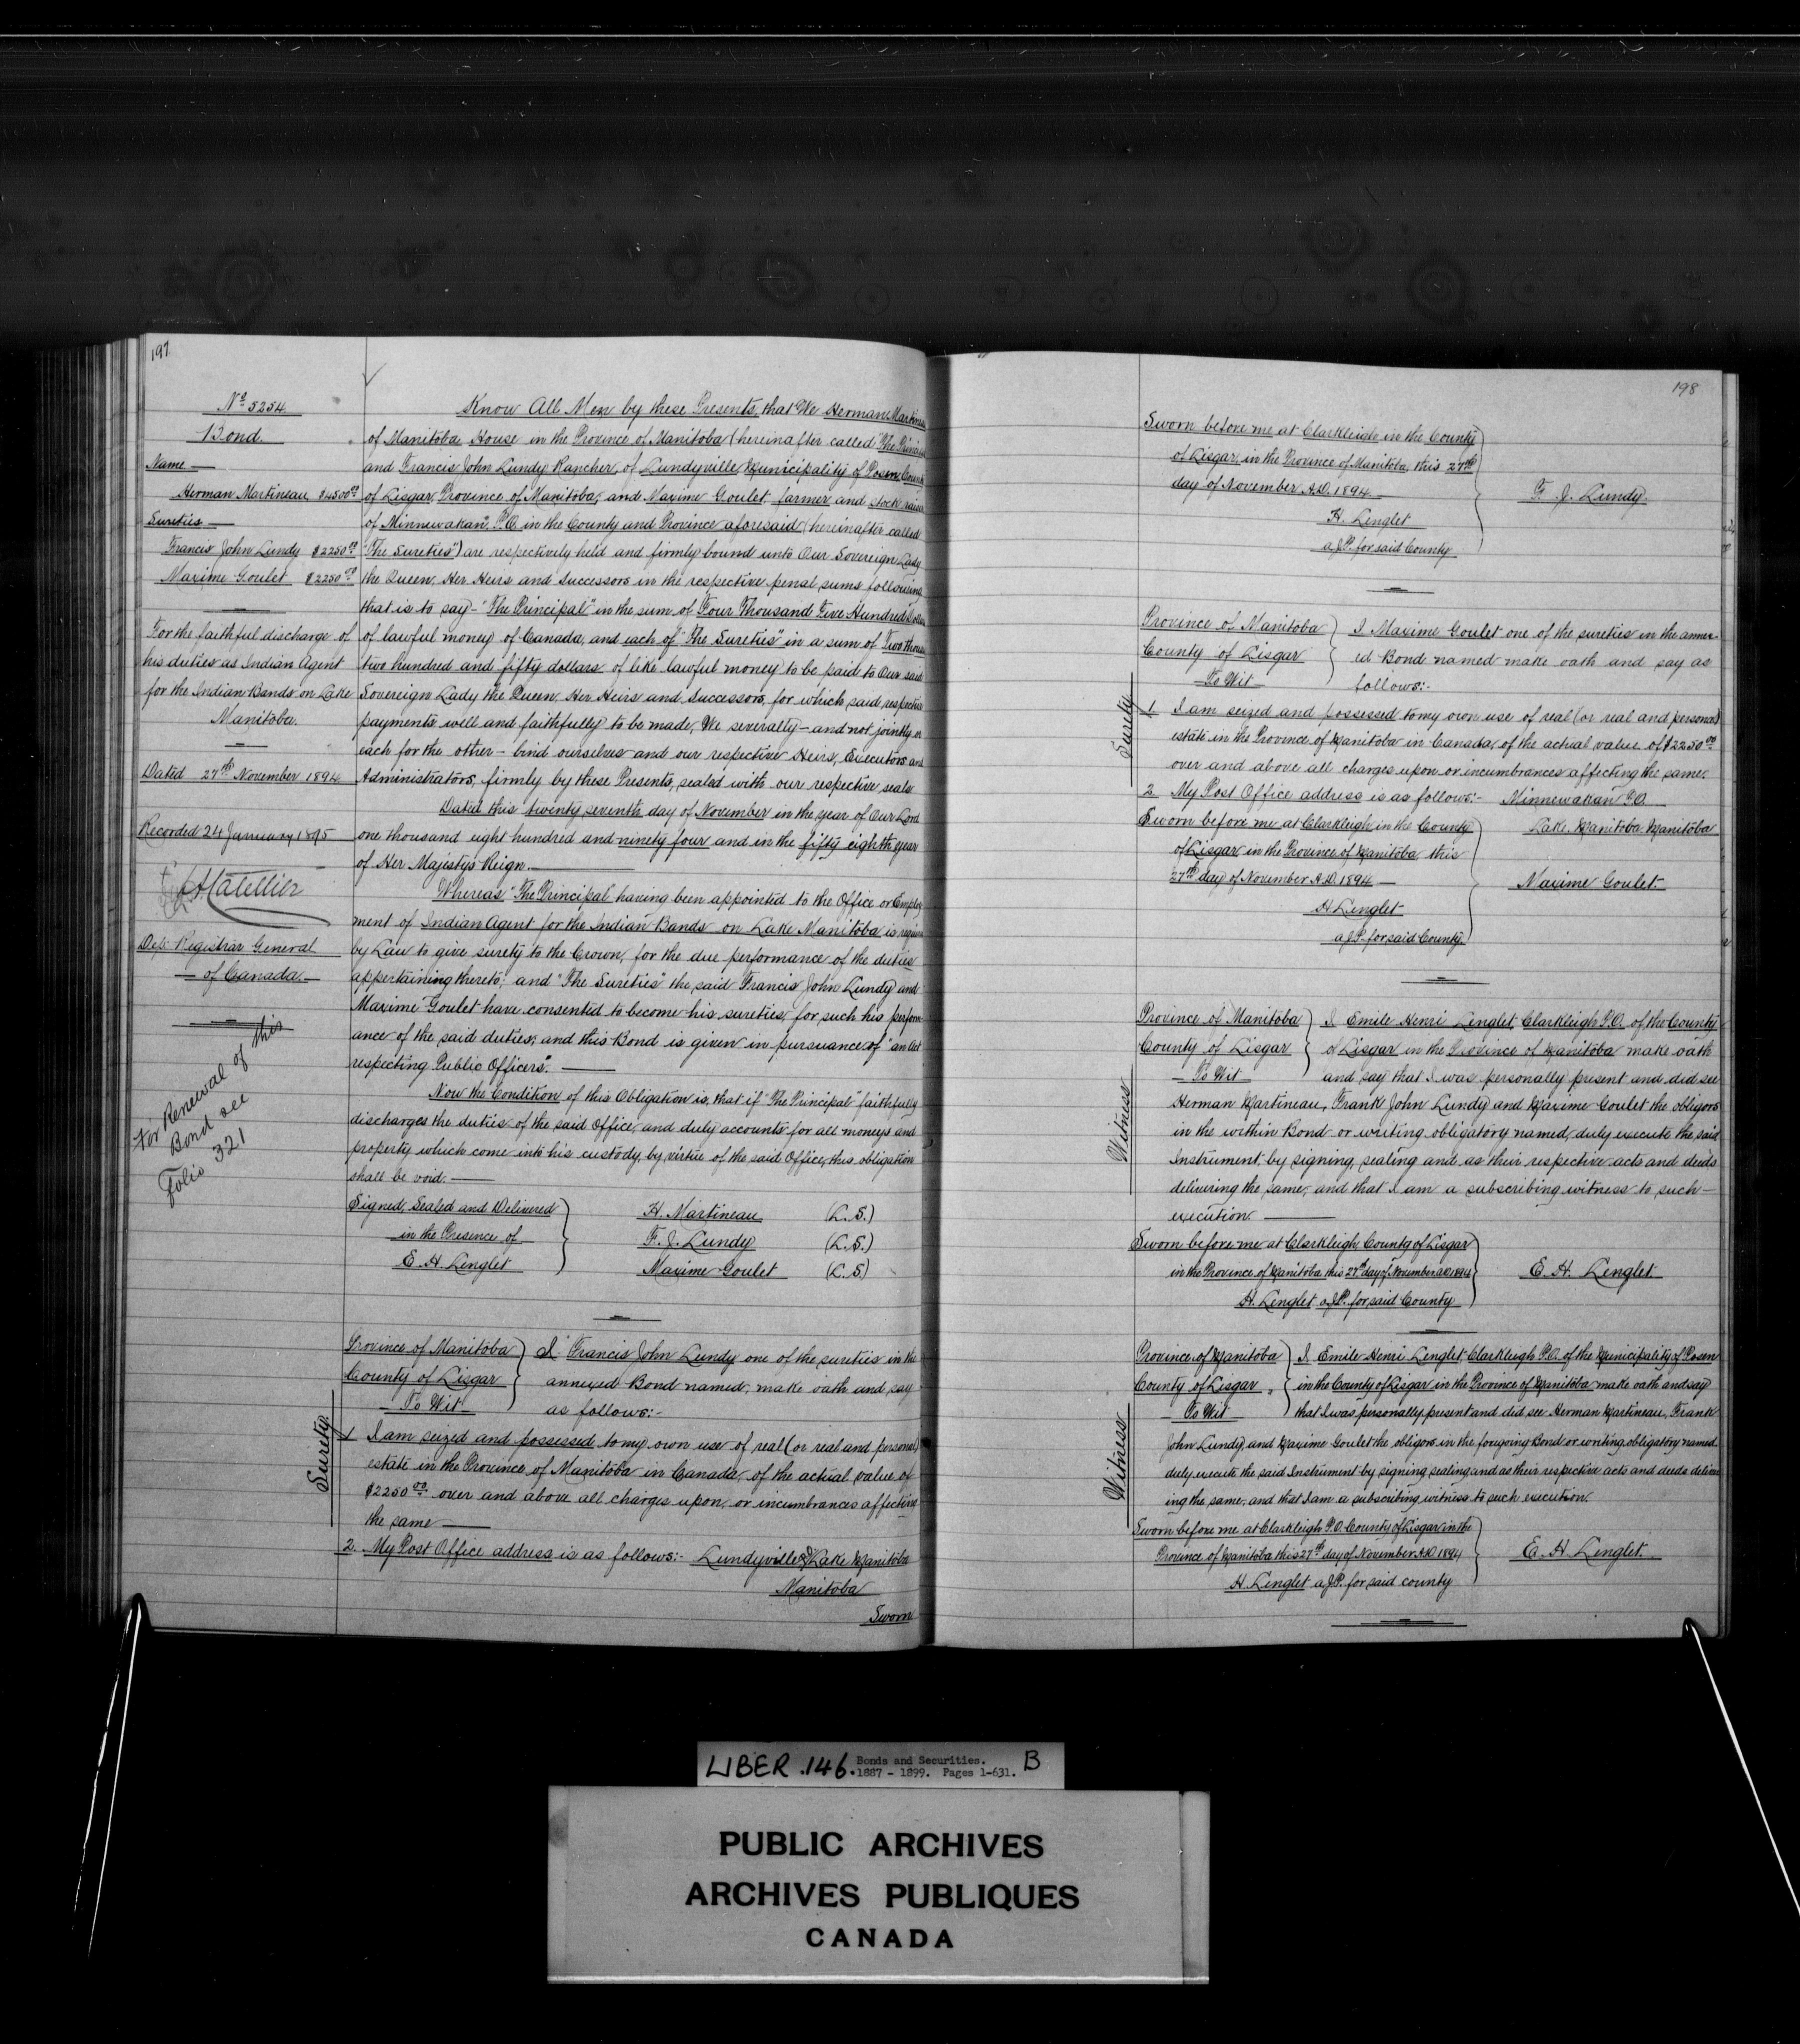 197
Nº 5254
Bond.
Name
Herman Martineau $4500.00
Sureties
Francis John Lundy $2250.00
Maxime Goulet $2250.00
For the faithful discharge of
his duties as Indian Agent
for the Indian Bands on Lake
Manitoba.
Dated 27th November 1894
Recorded 24 January 1895
Dep. Registrar General
of Canada.
For Renewal of this
Bond see
Folio 321
Know All Men by these Presents, that We Herman Martineau
of Manitoba House in the Province of Manitoba (hereinafter called "The Principal
and Francis John Lundy Rancher, of Lundyville Municipality of Posen County
of Lisgar, Province of Manitoba, and Maxime Goulet, farmer and stock raiser
of Minnewakan, P.O. in the County and Province aforesaid (hereinafter called
"The Sureties") are respectively held and firmly bound unto Our Sovereign Lady
the Queen, Her Heirs and Successors in the respective penal sums following
that is to say – "The Principal" in the sum of Four Thousand Five Hundred Dollars
of lawful money of Canada, and each of "The Sureties" in a sum of Two thousand
two hundred and fifty dollars of like lawful money to be paid to Our said
Sovereign Lady the Queen, Her Heirs and Successors, for which said respective
payments well and faithfully to be made, We severally – and not jointly or
each for the other – bind ourselves and our respective Heirs, Executors and
Administrators, firmly by these Presents, sealed with our respective seals
Dated this twenty seventh day of November in the year of Our Lord
one thousand eight hundred and ninety four and in the fifty eighth year
of Her Majesty's Reign.
Whereas "The Principal" having been appointed to the Office or Employ-
ment of Indian Agent for the Indian Bands on Lake Manitoba is required
by Law to give surety to the Crown, for the due performance of the duties
appertaining thereto; and "The Sureties" the said Francis John Lundy and
Maxime Goulet have consented to become his sureties, for such his perform-
ance of the said duties; and this Bond is given in pursuance of "an Act
respecting Public Officers".
Now the Condition of this Obligation is, that if "The Principal" faithfully
discharges the duties of the said Office, and duly accounts for all moneys and
property which come into his custody, by virtue of the said Office, this obligation
shall be void.
Signed, Sealed and Delivered
in the Presence of
E. H. Lenglet
H. Martineau (L.S.)
F. J. Lundy (L.S.)
Maxime Goulet (L.S)
Province of Manitoba
County of Lisgar
To Wit
I Francis John Lundy one of the sureties in the
annexed Bond named, make oath and say
as follows:-
Surety.
1 I am seized and possessed to my own use of real (or real and personal)
estate in the Province of Manitoba in Canada, of the actual value of
$2250.00 over and above all charges upon, or incumbrances affecting
the same
2. My Post Office address is as follows:- Lundyville Lake Manitoba
Manitoba
Sworn
198
Sworn before me at Clarkleigh in the County
of Lisgar, in the Province of Manitoba, this 27th
day of November A.D. 1894
H. Lenglet
a J.P. for said County
F. J. Lundy.
Province of Manitoba
County of Lisgar
To Wit
I Maxime Goulet one of the sureties in the annex-
ed Bond named make oath and say as
follows:-
Surety
1 I am seized and possessed to my own use of real (or real and personal)
estate in the Province of Manitoba in Canada, of the actual value of $2250.00
over and above all charges upon or incumbrances affecting the same.
2. My Post Office address is as follows:- Minnewakan P.O.
Lake Manitoba Manitoba
Sworn before me at Clarkleigh in the County
of Lisgar in the Province of Manitoba this
27th day of November A.D. 1894
H Lenglet
a J.P. for said County
Maxime Goulet.
Province of Manitoba
County of Lisgar
To Wit
I Emile Henri Lenglet, Clarkleigh P.O. of the County
of Lisgar in the Province of Manitoba make oath
and say that I was personally present and did see
Witness
Herman Martineau, Frank John Lundy and Maxime Goulet the obligors
in the within Bond or writing obligatory named, duly execute the said
Instrument, by signing, sealing and as their respective acts and deeds
delivering the same, and that I am a subscribing witness to such
execution.
Sworn before me at Clarkleigh County of Lisgar
in the Province of Manitoba this 27th day of November A.D. 1894
H. Lenglet a J.P. for said County
E. H. Lenglet
Province of Manitoba
County of Lisgar
To Wit
I Emile Henri Lenglet Clarkleigh P.O. of the Municipality of Posen
in the County of Lisgar in the Province of Manitoba make oath and say
that I was personally present and did see Herman Martineau, Frank
Witness
John Lundy, and Maxime Goulet the obligors in the foregoing Bond or writing obligatory named
duly execute the said Instrument by signing sealing and as their respective acts and deeds deliver-
ing the same, and that I am a subscribing witness to such execution.
Sworn before me at Clarkleigh P.O. County of Lisgar in the
Province of Manitoba this 27th day of November A.D. 1894
H. Lenglet a J.P. for said county
E. H Lenglet.
LIBER .146. Bonds and Securities. B
1887 - 1899. Pages 1-631.
PUBLIC ARCHIVES
ARCHIVES PUBLIQUES
CANADA